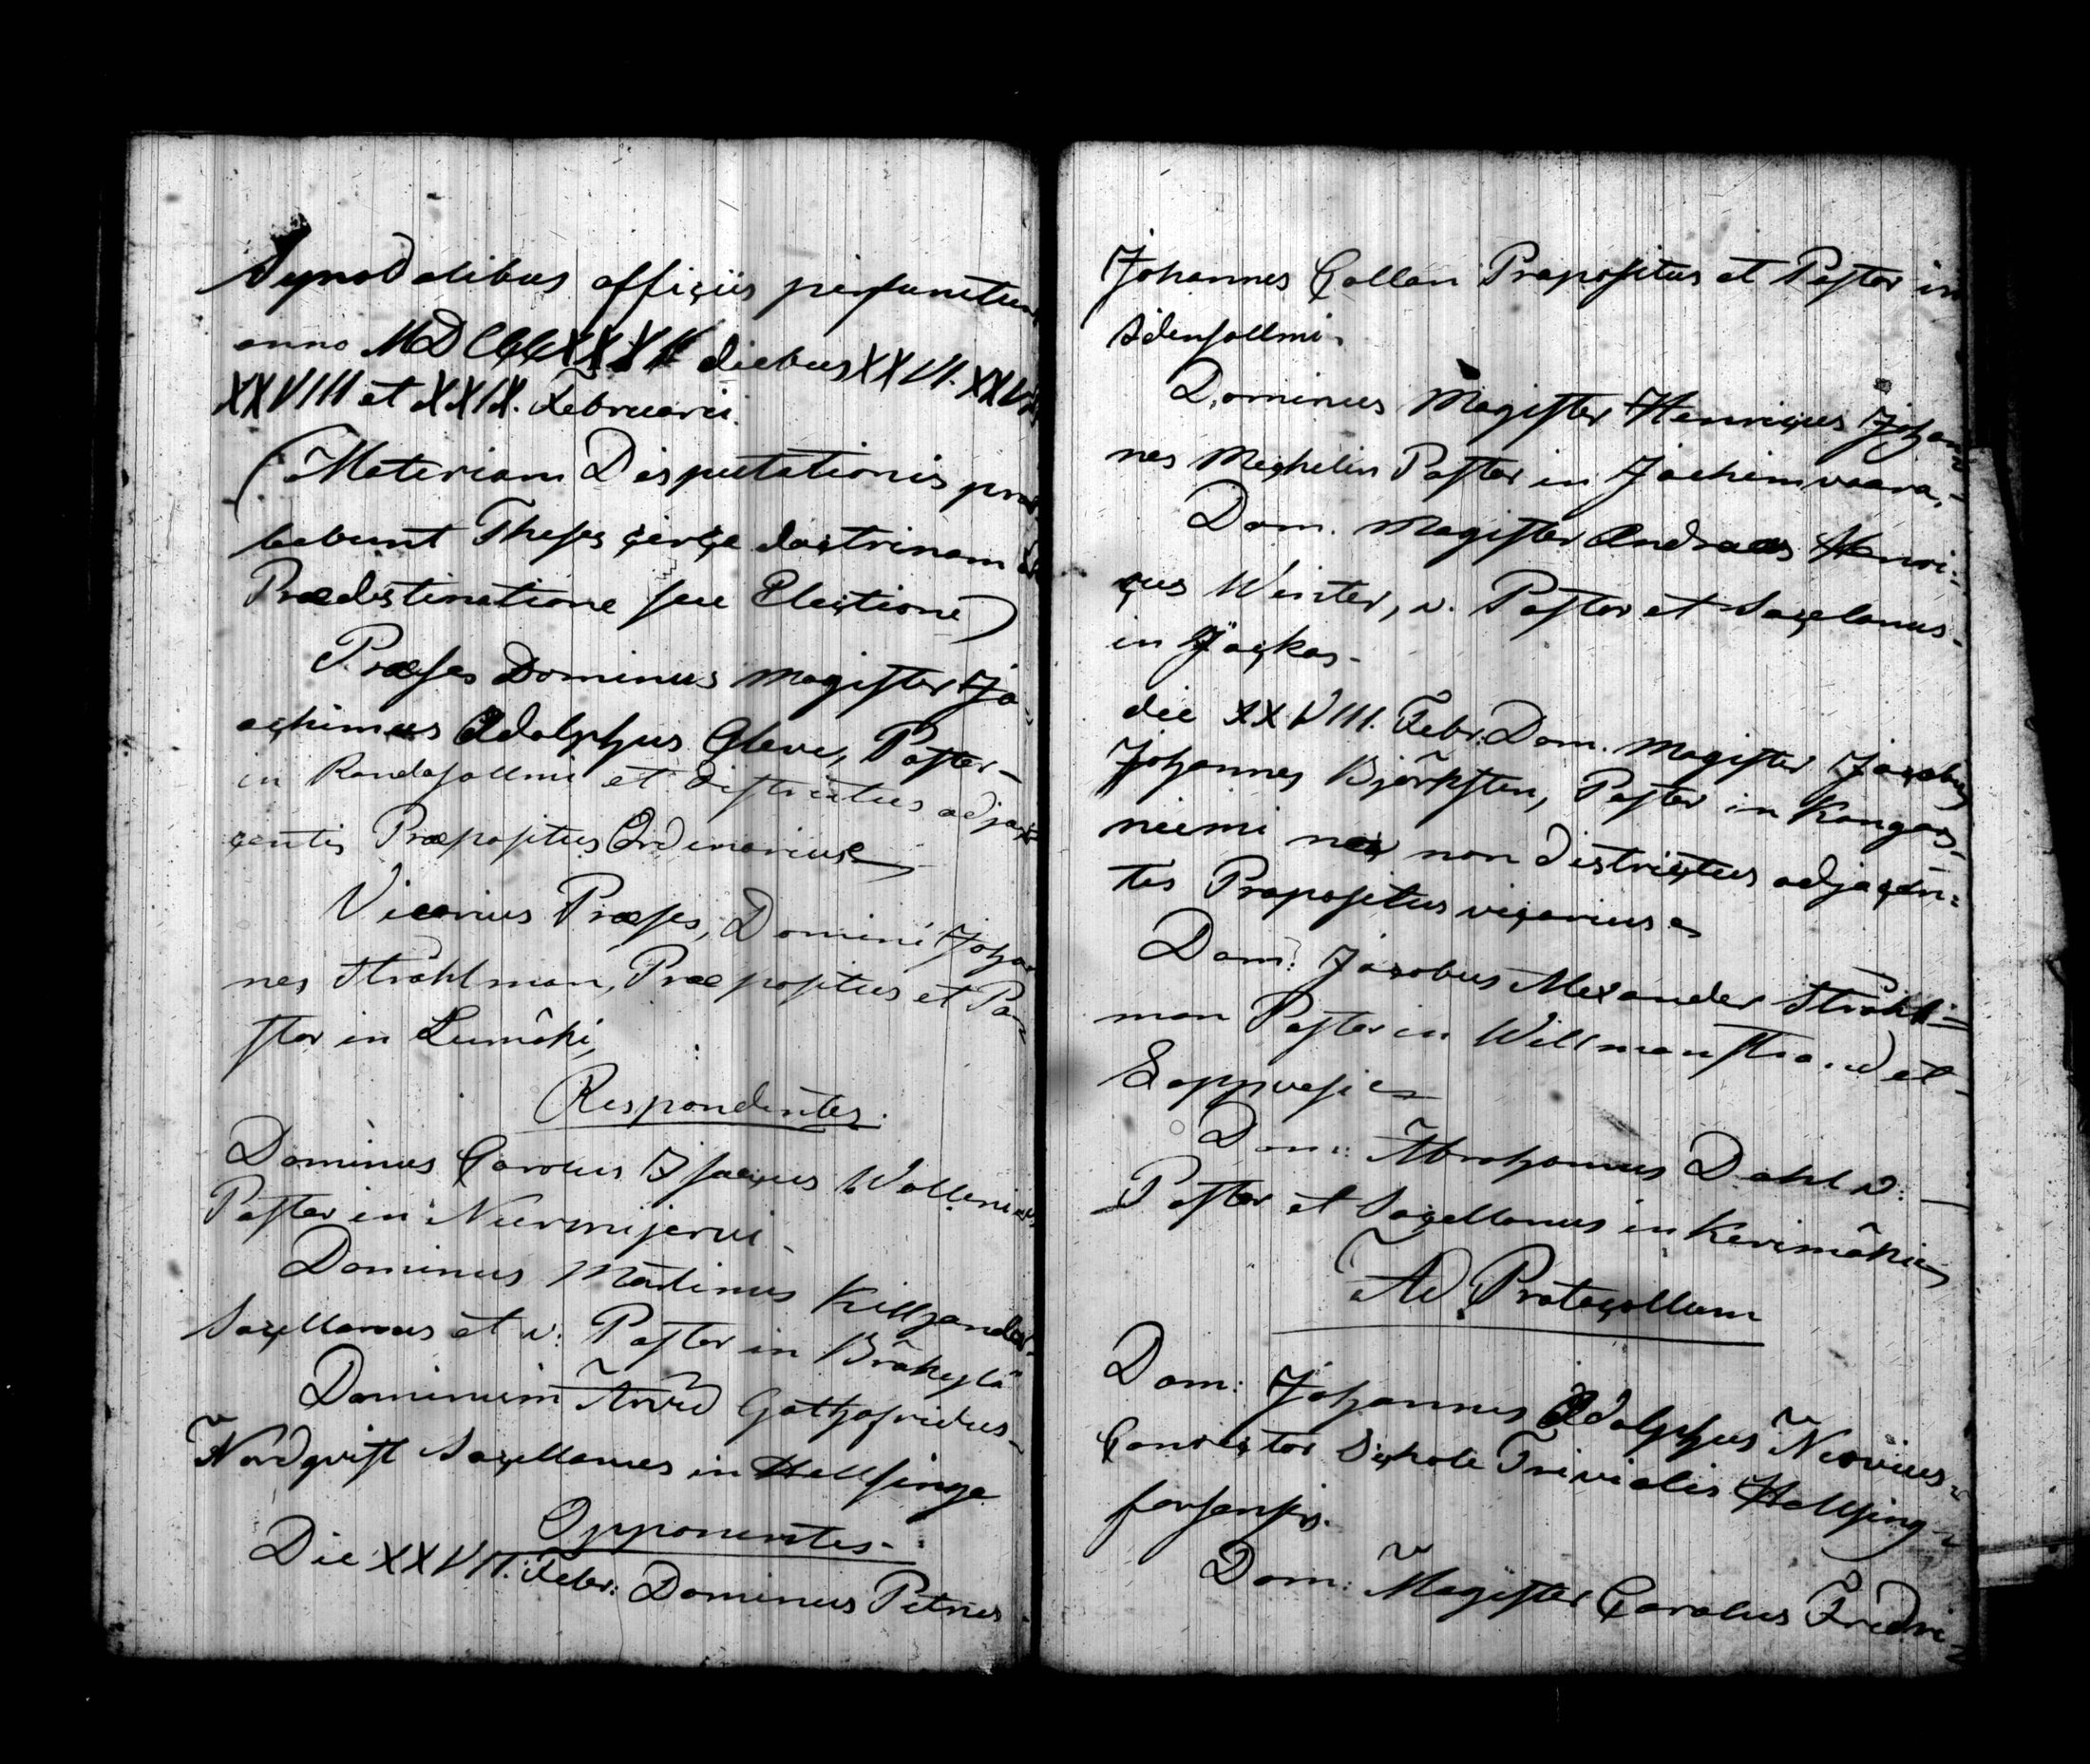 Synodalibus officiis perfunctur
anno MDCCCXXXIV diebus XXVI. XXVII
XXVIII et XXIX. Februarii.
(Materiam Disputationis præ
bebunt Theses circa doctrinam de
Prædestinatione seu Electione)
Præses Dominus Magister Jo-
achimus Adolphus Gleve, Pastor-
in Randasallmi et districtus adja
centis Præpositus Ordinarius
Vicarius Præses, Domini Johan
nes Ståhlman, Præpositus et Pa=
stor in Lumäki,
Respondentes.
Dominus Carolus Isacus Wallenius
Pastor in Nurmijervi.
Dominus Martinus Killjander-
Sacellanus et v: Pastor in Bråkylä
Dominum Arvid Gothofridus-
Nordqvist Sacellanus in Hellsinge
Opponentes.
Die XXVII. Febr: Dominus Petrus
Johannes Collan Præpositus et Pastor in
Idensallmi.
Dominus Magister Henricus Johan=
nes Mechelin Pastor in Jochimvaara,
Dom. Magister Andreas Henri=
cus Winter, v. Pastor et Sacelanus-
in Jäckas-
die XXVIII. Febr. Dom. Magister Jacobus
Johannes Björksten, Pastor in Kangas-
niemi nec non districtus adjacen=
tis Præpositus vicarius
Dom: Jacobus Alexander Stråhl=
man Pastor in Willmanstrand et-
Lappvesi
Dom: Abrahamus Dahl v:
Pastor et Sacellanus in Kerimäki
Ad Protocollum
Dom: Johannes Adolphus Neovius-
Conrector Schole Trivialis Hellsing-
forsensis.
Dom: Magister Carolus Fredri-